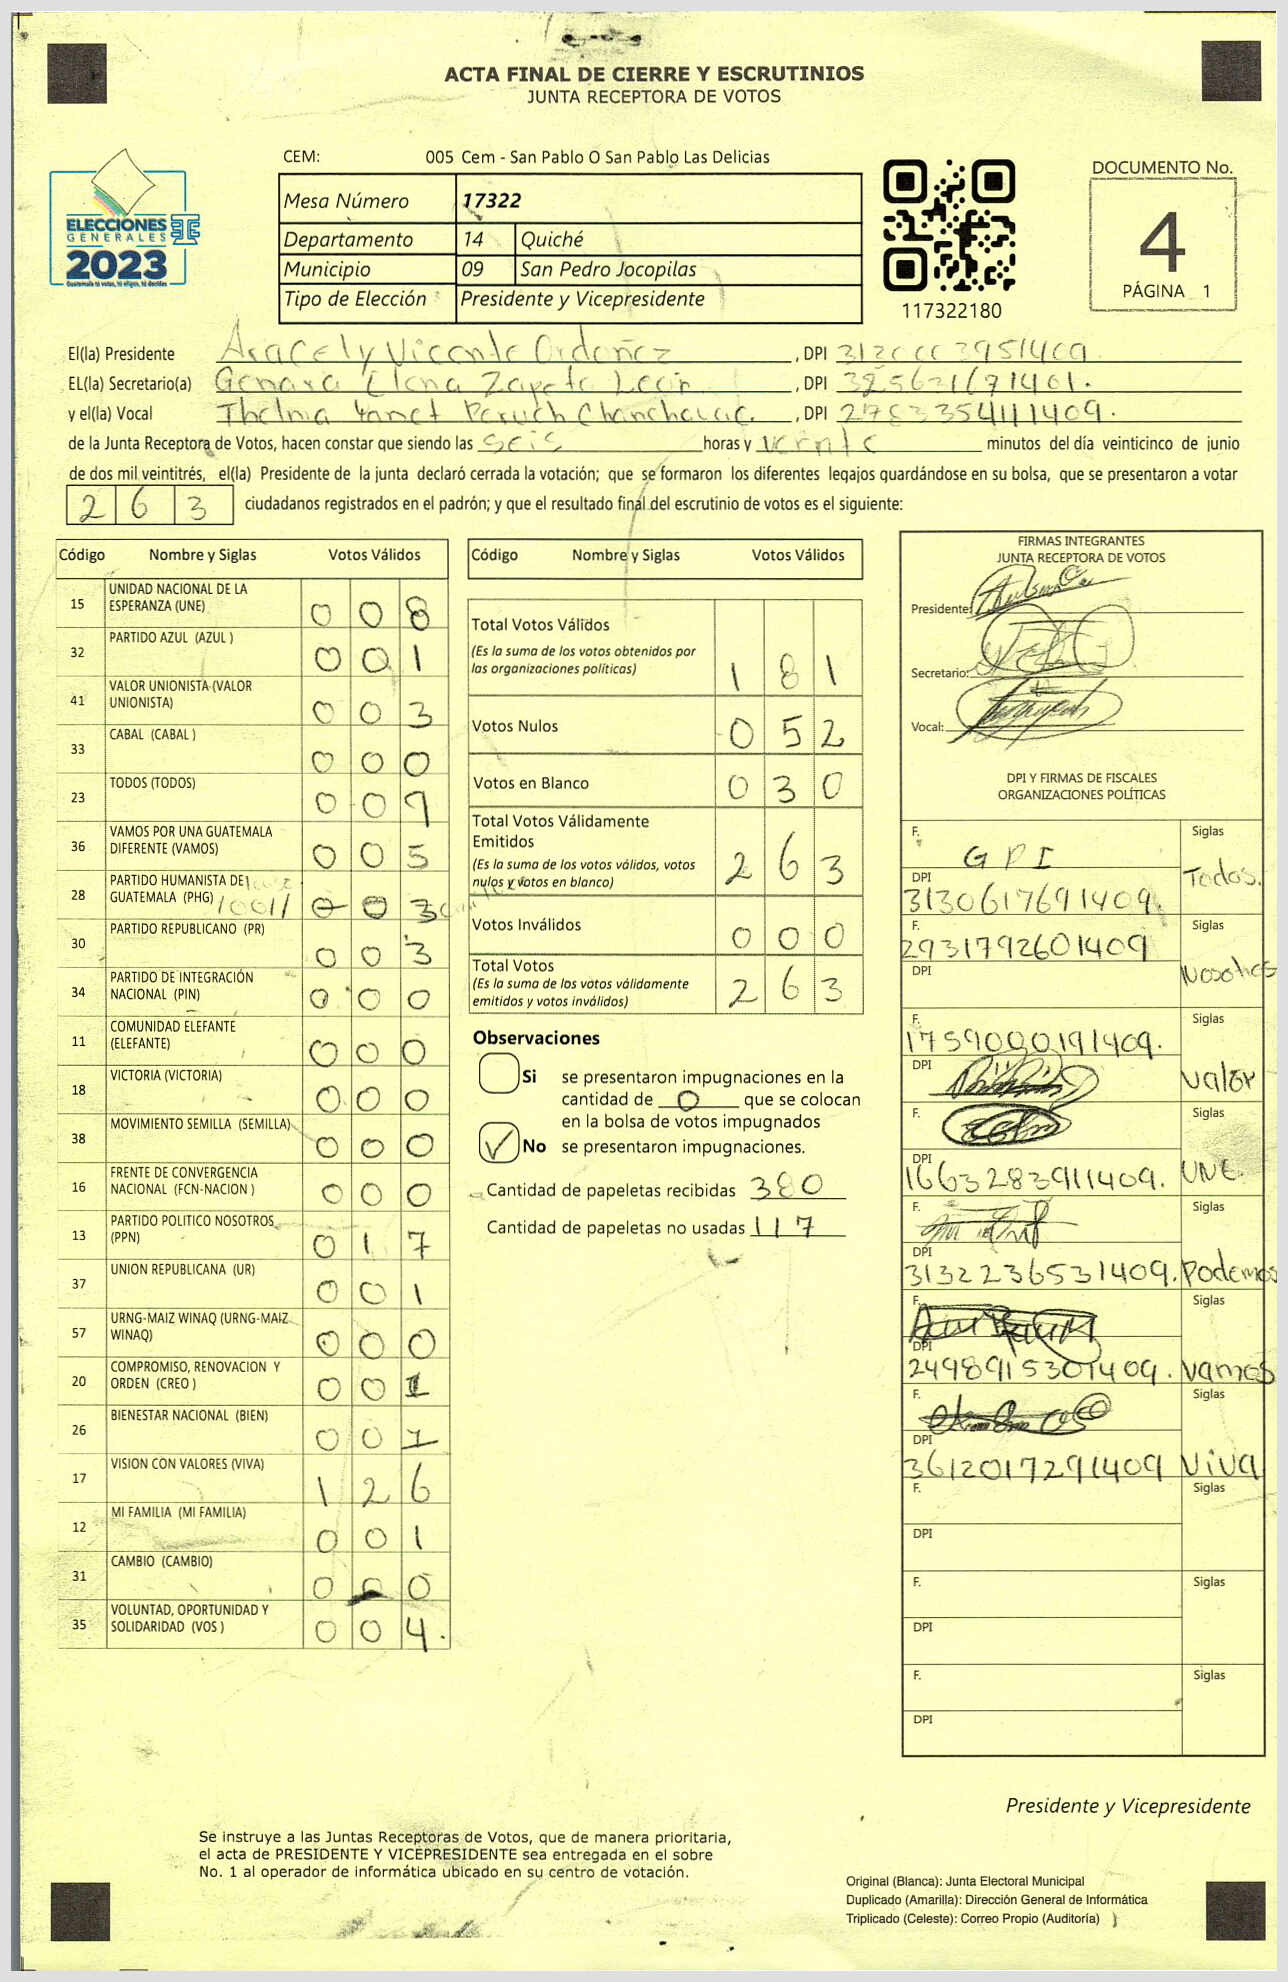 ACTA FINAL DE CIERRE Y ESCRUTINIOS
JUNTA RECEPTORA DE VOTOS
CEM: 005 Cem - San Pablo O San Pablo Las Delicias
Mesa Número 17322
Departamento 14 Quiché
Municipio 09 San Pedro Jocopilas
Tipo de Elección Presidente y Vicepresidente
ELECCIONES
GENERALES
2023
Guatemala tú votas, tú eliges, tú decides
117322180
DOCUMENTO No.
4
PÁGINA 1
El(la) Presidente Aracely Vicente Ordoñez , DPI
EL(la) Secretario(a) Genara Elena Zapeta León , DPI
y el(la) Vocal Thelma Yanet , DPI 2783354111409.
de la Junta Receptora de Votos, hacen constar que siendo las seis horas y veinte minutos del día veinticinco de junio
de dos mil veintitrés, el(la) Presidente de la junta declaró cerrada la votación; que se formaron los diferentes legajos quardándose en su bolsa, que se presentaron a votar
263 ciudadanos registrados en el padrón; y que el resultado final del escrutinio de votos es el siguiente:
Código Nombre y Siglas Votos Válidos
15 UNIDAD NACIONAL DE LA
ESPERANZA (UNE) 0 0 8
32 PARTIDO AZUL (AZUL ) 0 0 1
41 VALOR UNIONISTA (VALOR
UNIONISTA) 0 0 3
33 CABAL (CABAL ) 0 0 0
23 TODOS (TODOS) 0 0
36 VAMOS POR UNA GUATEMALA
DIFERENTE (VAMOS) 0 0 5
28 PARTIDO HUMANISTA DE
GUATEMALA (PHG) 0 0 3
30 PARTIDO REPUBLICANO (PR) 0 0 3
34 PARTIDO DE INTEGRACIÓN
NACIONAL (PIN) 0 0 0
11 COMUNIDAD ELEFANTE
(ELEFANTE) 0 0 0
18 VICTORIA (VICTORIA) 0 0 0
38 MOVIMIENTO SEMILLA (SEMILLA) 0 0 0
16 FRENTE DE CONVERGENCIA
NACIONAL (FCN-NACION ) 0 0 0
13 PARTIDO POLITICO NOSOTROS
(PPN) 0 1 7
37 UNION REPUBLICANA (UR) 0 0 1
57 URNG-MAIZ WINAQ (URNG-MAIZ
WINAQ) 0 0 0
20 COMPROMISO, RENOVACION Y
ORDEN (CREO ) 0 0 1
26 BIENESTAR NACIONAL (BIEN) 0 0 1
17 VISION CON VALORES (VIVA) 1 2 6
12 MI FAMILIA (MI FAMILIA) 0 0 1
31 CAMBIO (CAMBIO) 0 0 0
35 VOLUNTAD, OPORTUNIDAD Y
SOLIDARIDAD (VOS ) 0 0 4.
Código Nombre y Siglas Votos Válidos
Total Votos Válidos
(Es la suma de los votos obtenidos por
las organizaciones políticas) 1 8 1
Votos Nulos 0 5 2
Votos en Blanco 0 3 0
Total Votos Válidamente
Emitidos
(Es la suma de los votos válidos, votos
nulos y votos en blanco) 2 6 3
Votos Inválidos 0 0 0
Total Votos
(Es la suma de los votos válidamente
emitidos y votos inválidos) 2 6 3
Observaciones
Si se presentaron impugnaciones en la
cantidad de 0 que se colocan
en la bolsa de votos impugnados
No se presentaron impugnaciones.
Cantidad de papeletas recibidas 380
Cantidad de papeletas no usadas 117
FIRMAS INTEGRANTES
JUNTA RECEPTORA DE VOTOS
Presidente:
Secretario:
Vocal:
DPI Y FIRMAS DE FISCALES
ORGANIZACIONES POLÍTICAS
F. Siglas
G P I Todos.
DPI
3130617691409.
F. Siglas
2931792601409
DPI Nosotros
F. Siglas
1759000191409.
DPI Valor
F. Siglas
DPI
1663283911409. UNE.
F. Siglas
DPI
3132236531409. Podemos
F. Siglas
DPI
2498915301409. Vamos
F. Siglas
DPI
3612017291409 Viva
F. Siglas
DPI
F. Siglas
DPI
F. Siglas
DPI
Presidente y Vicepresidente
Se instruye a las Juntas Receptoras de Votos, que de manera prioritaria,
el acta de PRESIDENTE Y VICEPRESIDENTE sea entregada en el sobre
No. 1 al operador de informática ubicado en su centro de votación.
Original (Blanca): Junta Electoral Municipal
Duplicado (Amarilla): Dirección General de Informática
Triplicado (Celeste): Correo Propio (Auditoría)